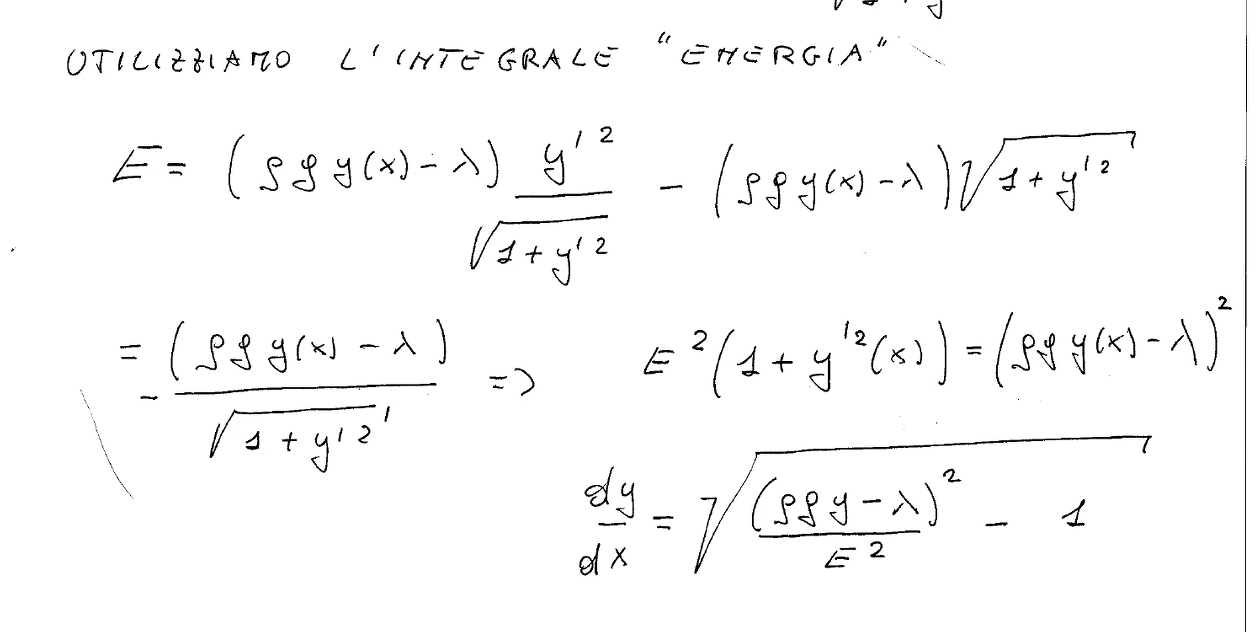 UTILIZZIAMO L'INTEGRALE "ENERGIA"
E = (ρg y(x) - λ) y'² / √(1 + y'²) - (ρg y(x) - λ) √(1 + y'²)
= - (ρg y(x) - λ) / √(1 + y'²) => E² (1 + y'²(x)) = (ρg y(x) - λ)²
dy/dx = √((ρg y - λ)² / E² - 1)